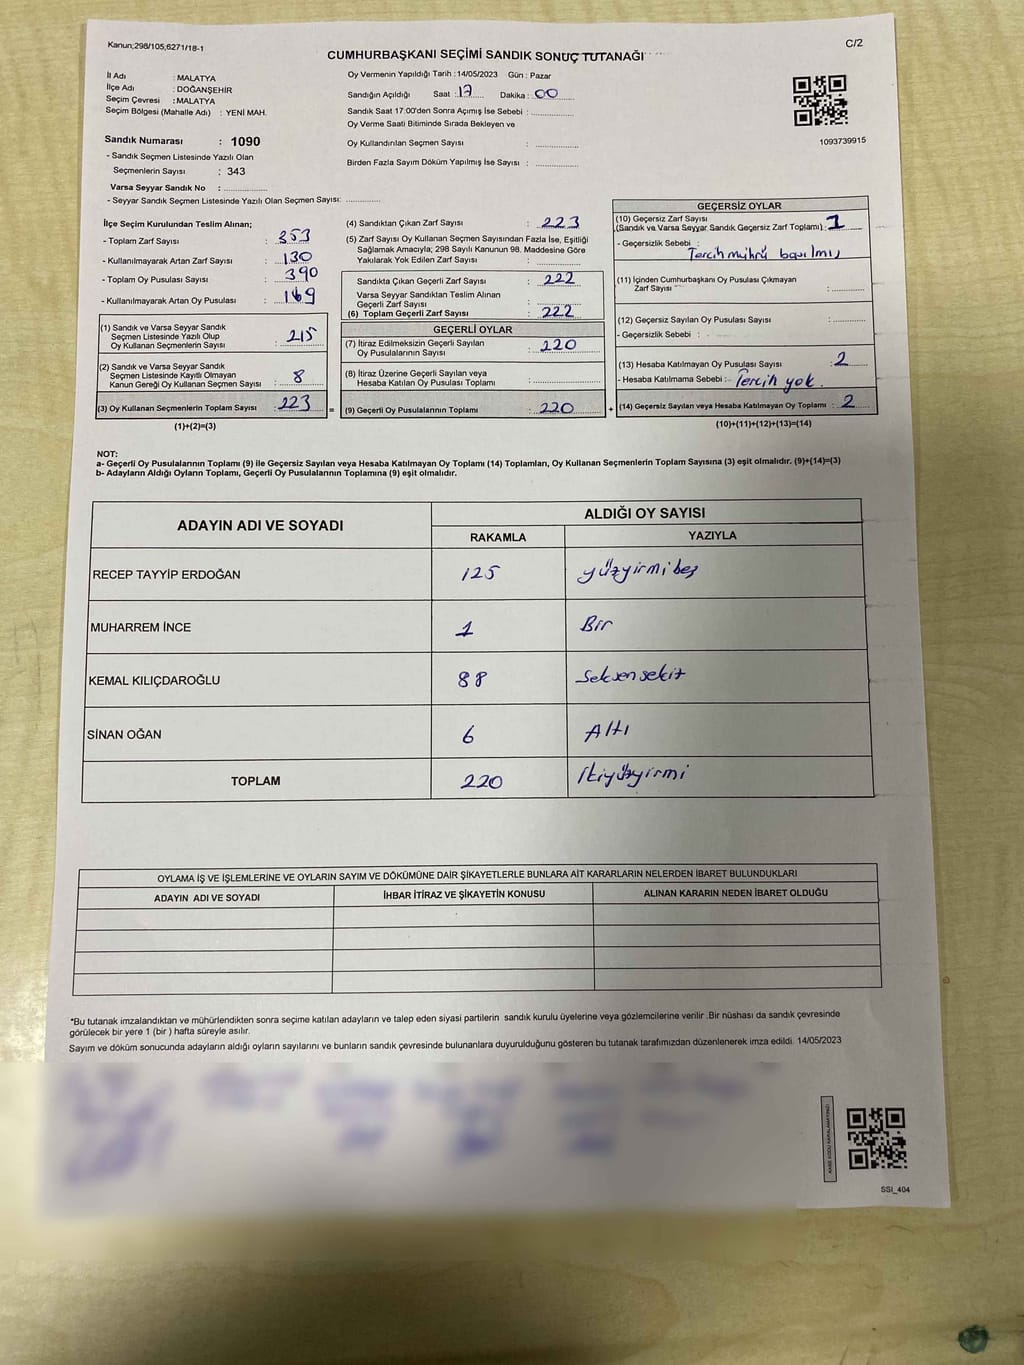 Kanun;298/105;6271/18-1
C/2
CUMHURBAŞKANI SEÇİMİ SANDIK SONUÇ TUTANAĞI
İl Adı : MALATYA
İlçe Adı : DOĞANŞEHİR
Seçim Çevresi : MALATYA
Seçim Bölgesi (Mahalle Adı) : YENİ MAH.
Sandık Numarası : 1090
- Sandık Seçmen Listesinde Yazılı Olan
Seçmenlerin Sayısı : 343
Varsa Seyyar Sandık No : ............
- Seyyar Sandık Seçmen Listesinde Yazılı Olan Seçmen Sayısı: ............
Oy Vermenin Yapıldığı Tarih :14/05/2023 Gün : Pazar
Sandığın Açıldığı Saat : 17 Dakika : 00
Sandık Saat 17:00'den Sonra Açımış İse Sebebi : ............
Oy Verme Saati Bitiminde Sırada Bekleyen ve
Oy Kullandırılan Seçmen Sayısı : ............
Birden Fazla Sayım Döküm Yapılmış İse Sayısı : ............
1093739915
İlçe Seçim Kurulundan Teslim Alınan;
- Toplam Zarf Sayısı : 353
- Kullanılmayarak Artan Zarf Sayısı : 130
- Toplam Oy Pusulası Sayısı : 390
- Kullanılmayarak Artan Oy Pusulası : 169
(1) Sandık ve Varsa Seyyar Sandık
Seçmen Listesinde Yazılı Olup
Oy Kullanan Seçmenlerin Sayısı : 215
(2) Sandık ve Varsa Seyyar Sandık
Seçmen Listesinde Kayıtlı Olmayan
Kanun Gereği Oy Kullanan Seçmen Sayısı : 8
(3) Oy Kullanan Seçmenlerin Toplam Sayısı : 223 =
(1)+(2)=(3)
(4) Sandıktan Çıkan Zarf Sayısı : 223
(5) Zarf Sayısı Oy Kullanan Seçmen Sayısından Fazla İse, Eşitliği
Sağlamak Amacıyla; 298 Sayılı Kanunun 98. Maddesine Göre
Yakılarak Yok Edilen Zarf Sayısı : ............
Sandıkta Çıkan Geçerli Zarf Sayısı : 222
Varsa Seyyar Sandıktan Teslim Alınan
Geçerli Zarf Sayısı : ............
(6) Toplam Geçerli Zarf Sayısı : 222
GEÇERLİ OYLAR
(7) İtiraz Edilmeksizin Geçerli Sayılan
Oy Pusulalarının Sayısı : 220
(8) İtiraz Üzerine Geçerli Sayılan veya
Hesaba Katılan Oy Pusulası Toplamı : ............
(9) Geçerli Oy Pusulalarının Toplamı : 220 +
GEÇERSİZ OYLAR
(10) Geçersiz Zarf Sayısı
(Sandık ve Varsa Seyyar Sandık Geçersiz Zarf Toplamı) : 1
- Geçersizlik Sebebi :
Tercih mührü basılmış
(11) İçinden Cumhurbaşkanı Oy Pusulası Çıkmayan
Zarf Sayısı : ............
(12) Geçersiz Sayılan Oy Pusulası Sayısı : ............
- Geçersizlik Sebebi :
(13) Hesaba Katılmayan Oy Pusulası Sayısı : 2
- Hesaba Katılmama Sebebi : Tercih yok.
(14) Geçersiz Sayılan veya Hesaba Katılmayan Oy Toplamı : 2
(10)+(11)+(12)+(13)=(14)
NOT:
a- Geçerli Oy Pusulalarının Toplamı (9) ile Geçersiz Sayılan veya Hesaba Katılmayan Oy Toplamı (14) Toplamları, Oy Kullanan Seçmenlerin Toplam Sayısına (3) eşit olmalıdır. (9)+(14)=(3)
b- Adayların Aldığı Oyların Toplamı, Geçerli Oy Pusulalarının Toplamına (9) eşit olmalıdır.
ADAYIN ADI VE SOYADI
ALDIĞI OY SAYISI
RAKAMLA YAZIYLA
RECEP TAYYİP ERDOĞAN 125 yüzyirmibeş
MUHARREM İNCE 1 Bir
KEMAL KILIÇDAROĞLU 88 Seksensekiz
SİNAN OĞAN 6 Altı
TOPLAM 220 İkiyüzyirmi
OYLAMA İŞ VE İŞLEMLERİNE VE OYLARIN SAYIM VE DÖKÜMÜNE DAİR ŞİKAYETLERLE BUNLARA AİT KARARLARIN NELERDEN İBARET BULUNDUKLARI
ADAYIN ADI VE SOYADI İHBAR İTİRAZ VE ŞİKAYETİN KONUSU ALINAN KARARIN NEDEN İBARET OLDUĞU
*Bu tutanak imzalandıktan ve mühürlendikten sonra seçime katılan adayların ve talep eden siyasi partilerin sandık kurulu üyelerine veya gözlemcilerine verilir .Bir nüshası da sandık çevresinde
görülecek bir yere 1 (bir ) hafta süreyle asılır.
Sayım ve döküm sonucunda adayların aldığı oyların sayılarını ve bunların sandık çevresinde bulunanlara duyurulduğunu gösteren bu tutanak tarafımızdan düzenlenerek imza edildi. 14/05/2023
SSI_404